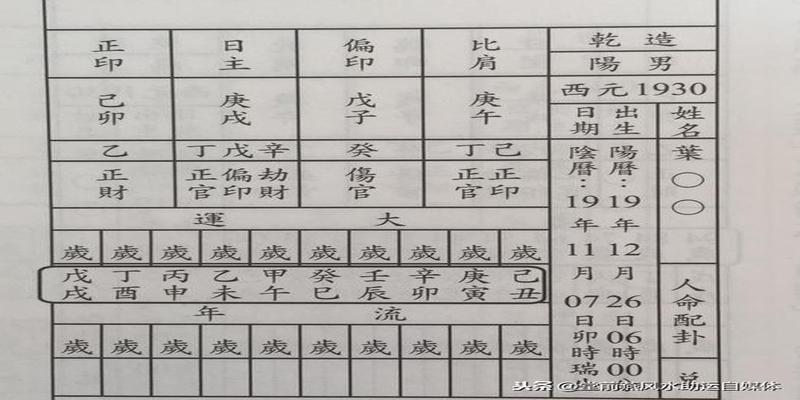 乾造
陽男
西元1930
姓名
葉○○
人命配卦
出生日期
陽曆：19年12月26日06時00
陰曆：19年11月07日卯時瑞
比肩
偏印
日主
正印
庚午
戊子
庚戌
己卯
丁己
癸
丁戊辛
乙
正官 正印
傷官
正官 偏印 劫財
正財
大運
歲 歲 歲 歲 歲 歲 歲 歲 歲 歲
己丑 庚寅 辛卯 壬辰 癸巳 甲午 乙未 丙申 丁酉 戊戌
流年
歲 歲 歲 歲 歲 歲 歲 歲 歲 歲
头条 @
风水助运自媒体